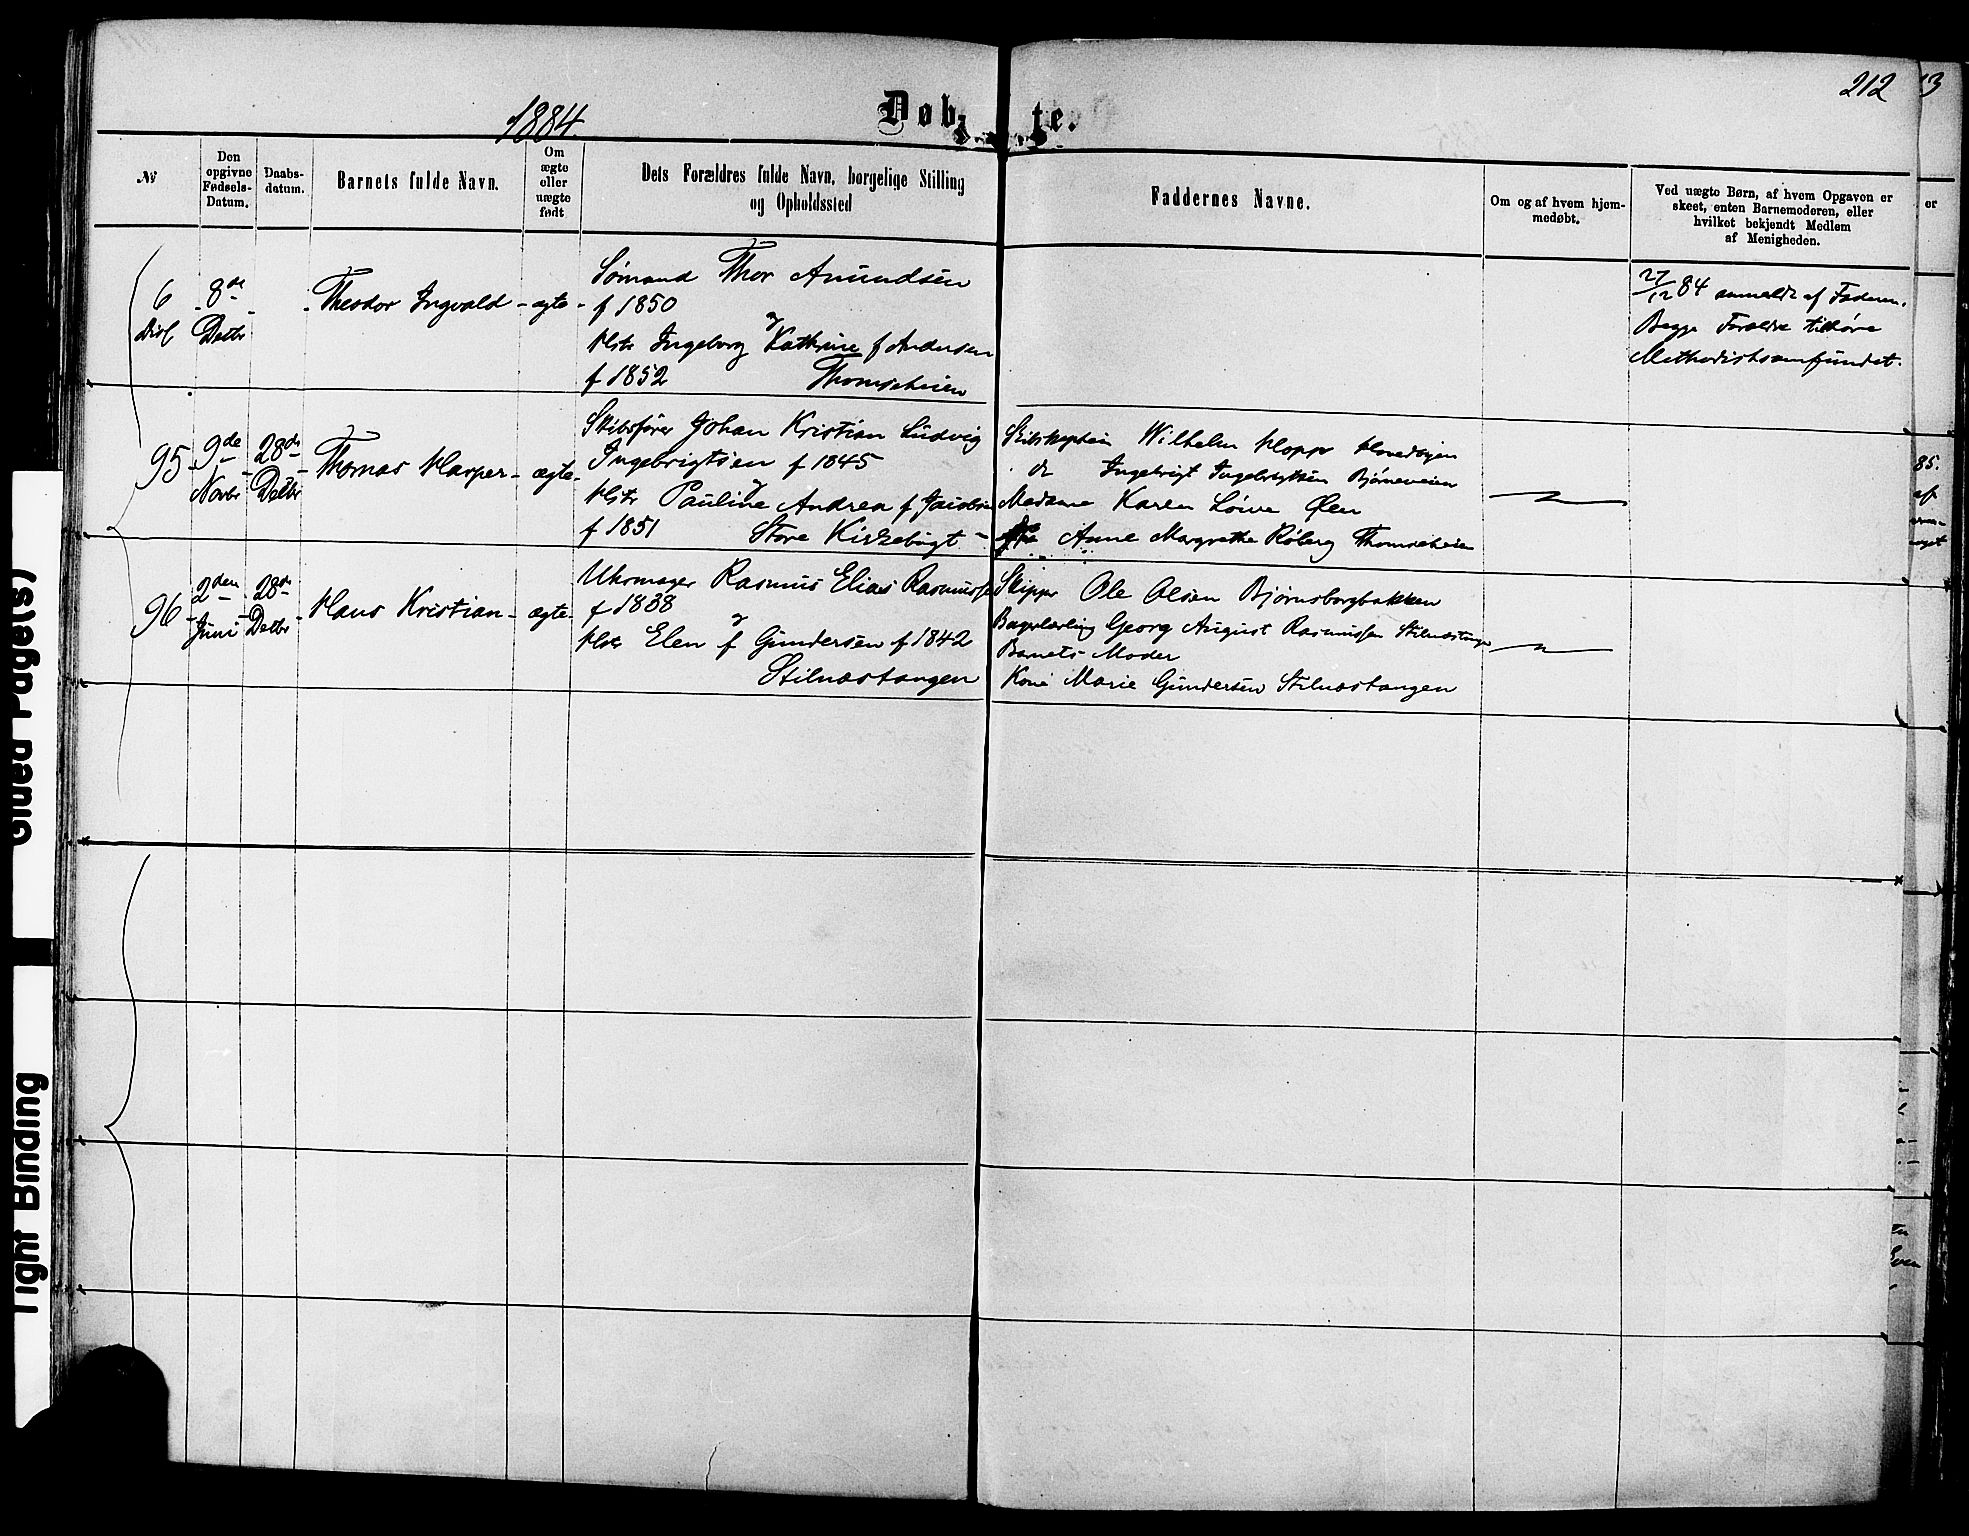 212
1884
Døbte.
№
Den opgivne Fødsels-Datum.
Daabs-datum.
Barnets fulde Navn.
Om ægte eller uægte født
Dets Forældres fulde Navn, borgelige Stilling
og Opholdssted
Faddernes Navne.
Om og af hvem hjem-
medøbt.
Ved uægte Børn, af hvem Opgaven er
skeet, enten Barnemoderen, eller
hvilket bekjendt Medlem
af Menigheden.
6
Diss
8de
Decbr
Theodor Ingvald - ægte -
Sømand Thor Amundsen
f 1850
Hstr Ingeborg Kathrine f Andersen
f 1852 Thomseheien
27/12 84 anmeldt af Faderen.
Begge Forældre tilhøre
Methodistsamfundet.
95
9de
Novbr
28de
Decbr
Thomas Harper - ægte -
Skibsfører Johan Kristian Ludvig
Ingebrigtsen f 1845
Hstr Pauline Andrea f Jacobsen
f 1851 Store Kirkebugt -
Skibskaptein Wilhelm Hopp
do Ingebrigt Ingebrigtsen Bjørneveien
Madame Karen Løive Øen
Anne Margrethe Roberg Thomseheien
96
2den
Juni
28de
Decbr
Hans Kristian - ægte -
Uhrmager Rasmus Elias Rasmussen
f 1838
Hstr Elen f Gundersen f 1842
Stilnæstangen
Skipper Ole Olsen Bjørnsborgbakken
Bagerlærling Georg August Rasmussen Stilnæstangen
Barnets Moder
Kone Marie Gundersen Stilnæstangen
Light Binding